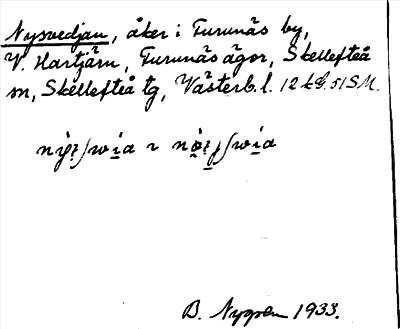 Nysvedjan, åker i Furunäs by,
V. Hartjärn, Furunäs ägor, Skellefteå
sn, Skellefteå tg, Västerb. l. 12 k G. 51 S.M.
B. Nygren 1933.